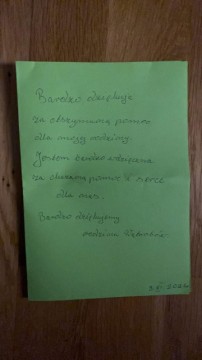 Bardzo dziękuję
za otrzymaną pomoc
dla mojej rodziny.
Jestem bardzo wdzięczna
za okazaną pomoc i serce
dla nas.
Bardzo dziękujemy
rodzina